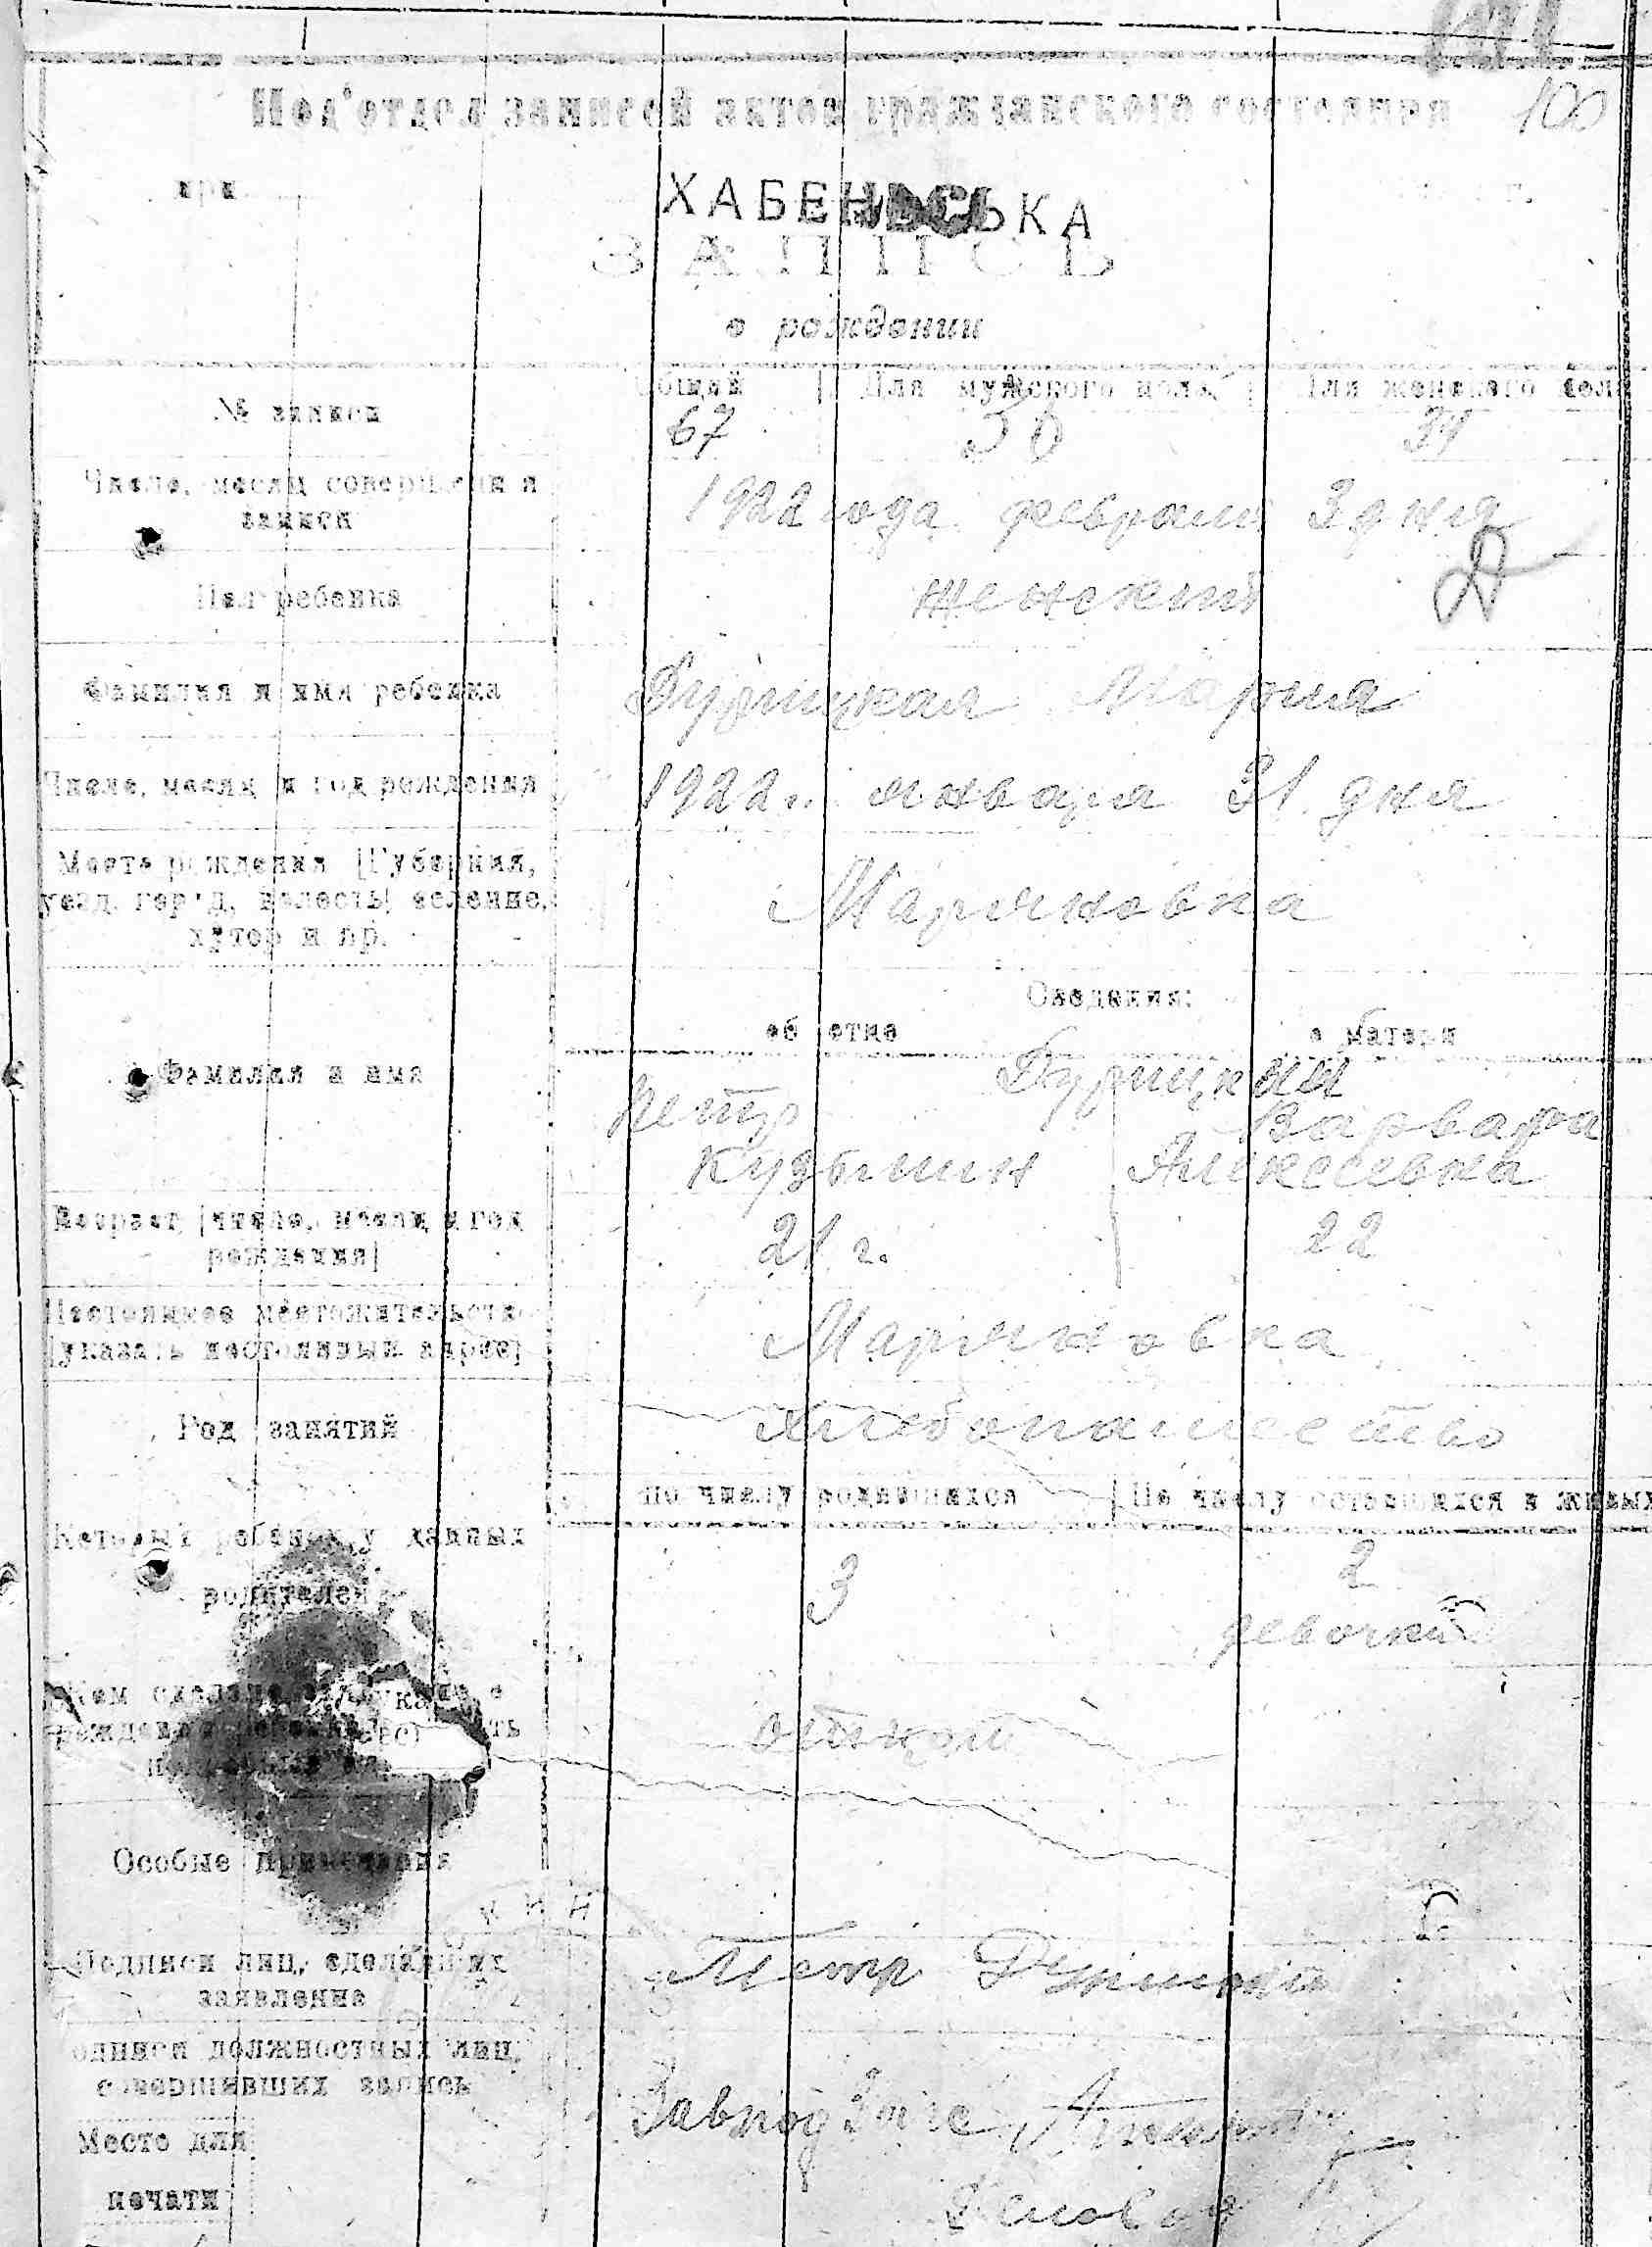 Под'отдел записей актов гражданского состояния 100
при
ХАБЕНЬСЬКА
ЗАПИСЬ
о рождении
Общий Для мужского пола Для женского пола
№ записи 67 34
Число, месяц совершения 1922 года февраля 3 дня
записи
Пол ребенка женский
Фамилия и имя ребенка Мария
Число, месяц и год рождения 1922 г. января 31 дня
Место рождения [Губерния,
уезд, город, волость, селение, Марияновка
хутор и пр.
Сведения:
об отце о матери
Фамилия и имя
Петр Варвара
Кузьмин Алексеевна
Возраст [число, месяц и год 21 г. 22
рождения]
Постоянное местожительство
[указать постоянный адрес] Марияновка
Род занятий хлебопашество
По числу родившихся По числу оставшихся в живых
Который ребенок у данных 2
родителей 3
девочка
отцом
Особые примечания
Подписи лиц, сделавших Петр
заявление
Подписи должностных лиц,
совершивших запись
Завпод
Место для
печати
Деловод